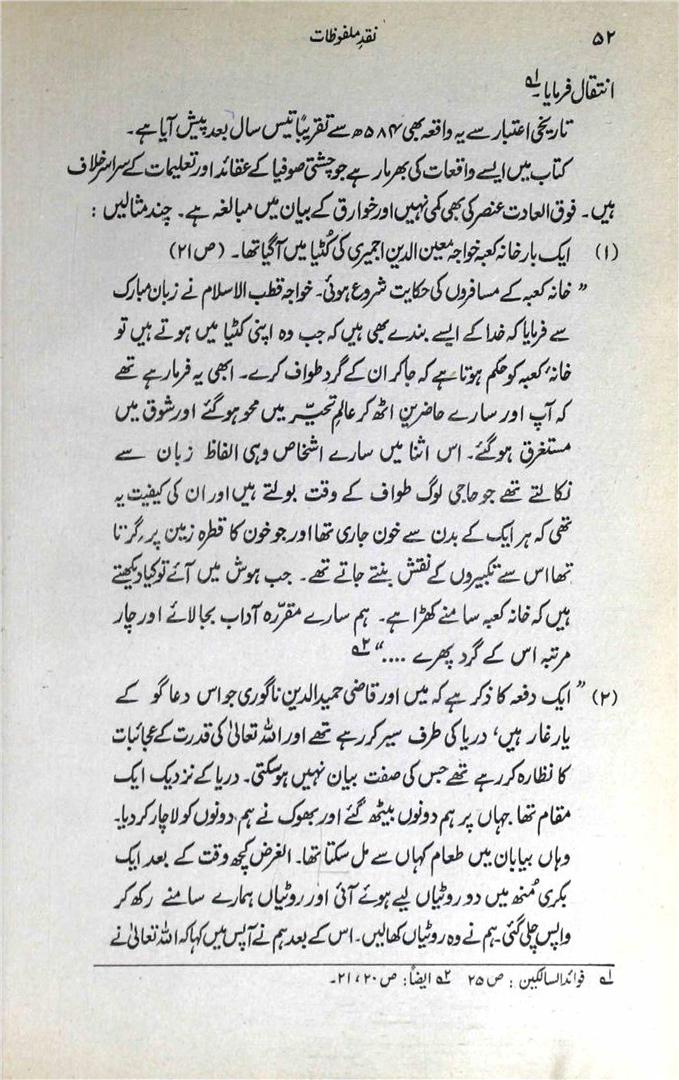 ۵۲ نقدِ ملفوظات
انتقال فرمایا۔ ۱؎
تاریخی اعتبار سے یہ واقعہ بھی ۵۸۴ھ سے تقریباً تیس سال بعد پیش آیا ہے۔
کتاب میں ایسے واقعات کی بھرمار ہے جو چشتی صوفیا کے عقائد اور تعلیمات کے سراسر خلاف
ہیں۔ فوق العادت عنصر کی بھی کمی نہیں اور خوارق کے بیان میں مبالغہ ہے۔ چند مثالیں :
(۱) ایک بار خانہ کعبہ خواجہ معین الدین اجمیری کی کُٹیا میں آگیا تھا۔ (ص ۲۱)
” خانہ کعبہ کے مسافروں کی حکایت شروع ہوئی۔ خواجہ قطب الاسلام نے زبان مبارک
سے فرمایا کہ خدا کے ایسے بندے بھی ہیں کہ جب وہ اپنی کٹیا میں ہوتے ہیں تو
خانۂ کعبہ کو حکم ہوتا ہے کہ جا کر ان کے گرد طواف کرے۔ ابھی یہ فرما رہے تھے
کہ آپ اور سارے حاضرین اٹھ کر عالمِ تحیّر میں محو ہو گئے اور شوق میں
مستغرق ہوگئے۔ اس اثنا میں سارے اشخاص وہی الفاظ زبان سے
نکالتے تھے جو حاجی لوگ طواف کے وقت بولتے ہیں اور ان کی کیفیت یہ
تھی کہ ہر ایک کے بدن سے خون جاری تھا اور جو خون کا قطرہ زمین پر گرتا
تھا اس سے تکبیروں کے نقش بنتے جاتے تھے۔ جب ہوش میں آئے تو کیا دیکھتے
ہیں کہ خانہ کعبہ سامنے کھڑا ہے۔ ہم سارے مقررّہ آداب بجا لائے اور چار
مرتبہ اس کے گرد پھرے ....“ ۲؎
(۲) ” ایک دفعہ کا ذکر ہے کہ میں اور قاضی حمید الدین ناگوری جو اس دعا گو کے
یارِ غار ہیں، دریا کی طرف سیر کر رہے تھے اور اللہ تعالیٰ کی قدرت کے عجائبات
کا نظارہ کر رہے تھے جس کی صفت بیان نہیں ہوسکتی۔ دریا کے نزدیک ایک
مقام تھا جہاں پر ہم دونوں بیٹھ گئے اور بھوک نے ہم دونوں کو لاچار کر دیا۔
وہاں بیابان میں طعام کہاں سے مل سکتا تھا۔ الغرض کچھ وقت کے بعد ایک
بکری مُنھ میں دو روٹیاں لیے ہوئے آئی اور روٹیاں ہمارے سامنے رکھ کر
واپس چلی گئی۔ ہم نے وہ روٹیاں کھالیں۔ اس کے بعد ہم نے آپس میں کہا کہ اللہ تعالیٰ نے
۱؎ فوائد السالکین : ص ۲۵ ۲؎ ایضاً : ص ۲۰، ۲۱۔